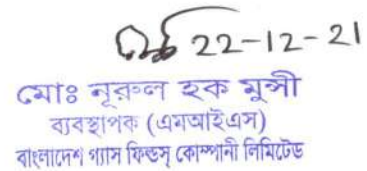 22-12-21
মোঃ নূরুল হক মুন্সী
ব্যবস্থাপক (এমআইএস)
বাংলাদেশ গ্যাস ফিল্ডস্ কোম্পানী লিমিটেড